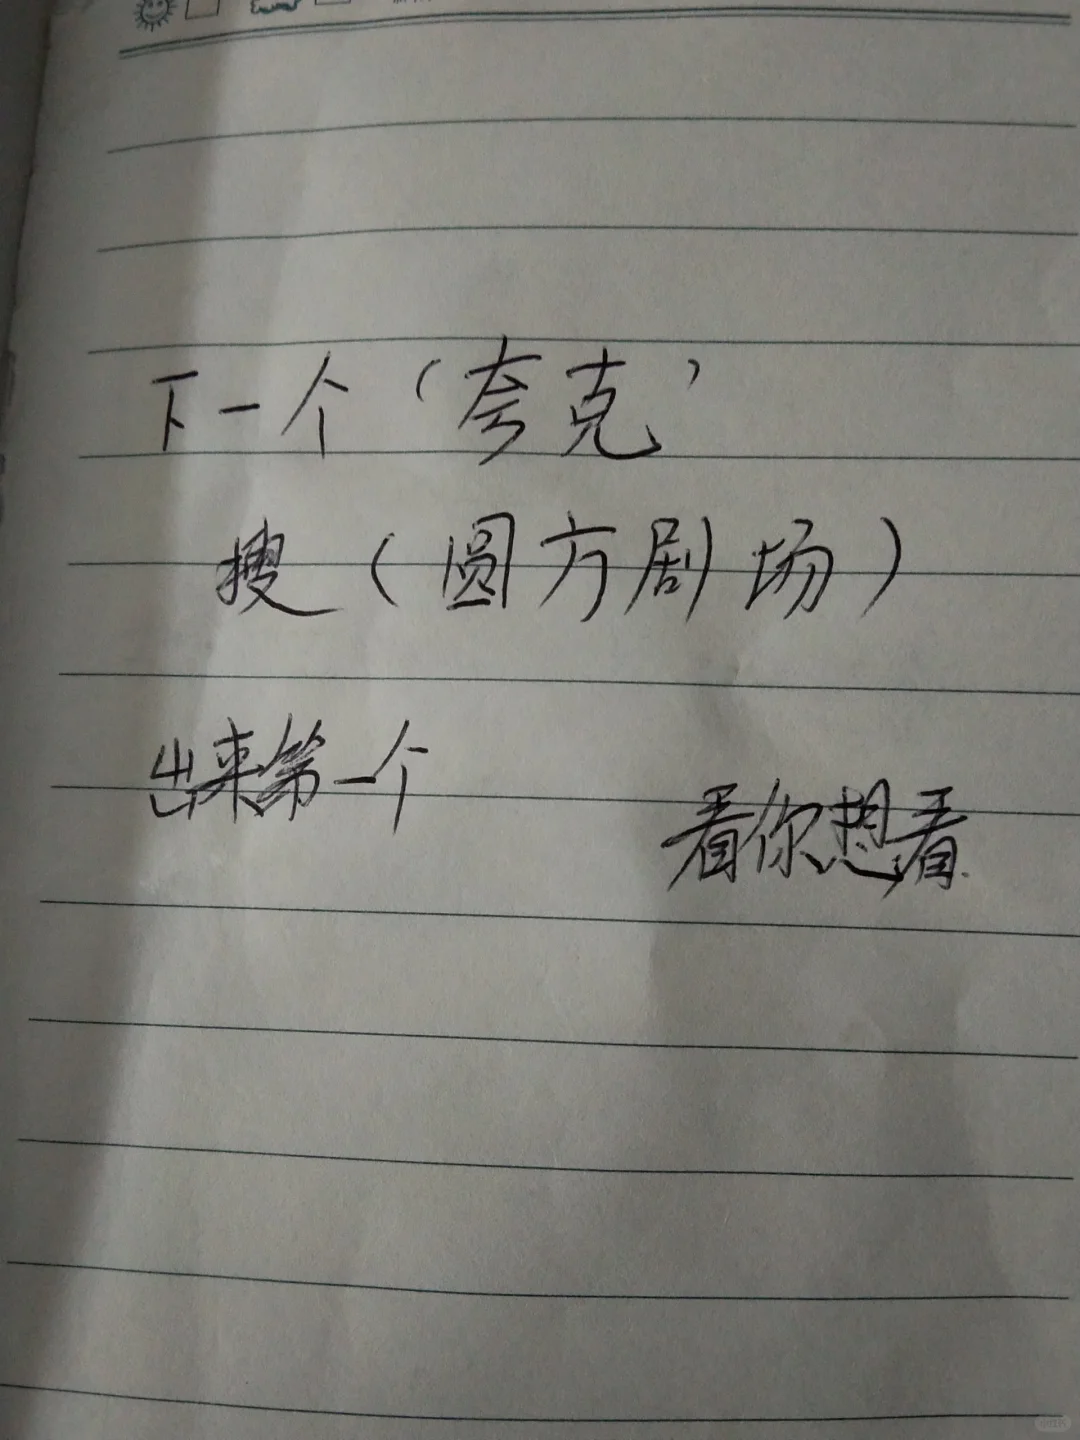 下一个（夸克）
搜（圆方剧场）
出来第一个
看你想看.